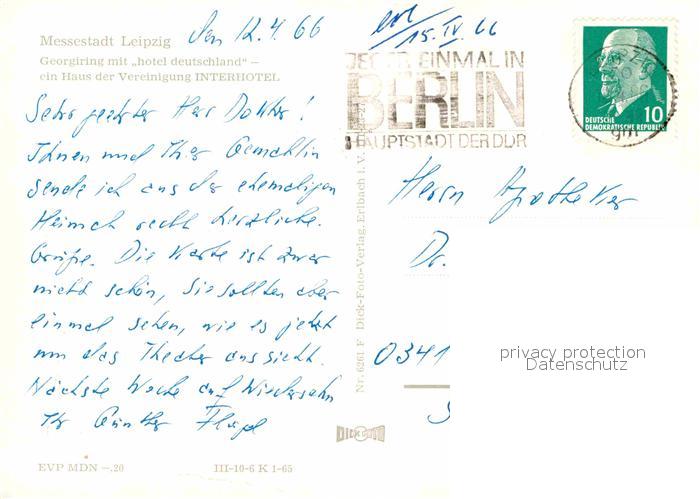 Messestadt Leipzig
Georgiring mit „hotel deutschland" –
ein Haus der Vereinigung INTERHOTEL
Den 12.4.66
erl 15.IV.66
JEDER EINMAL IN
BERLIN
HAUPTSTADT DER DDR
10
DEUTSCHE
DEMOKRATISCHE REPUBLIK
Sehr geehrter Herr Doktor!
Ihnen und Ihrer Gemahlin
sende ich aus der ehemaligen
Heimat recht herzliche
Grüße. Die Karte ist zwar
nicht schön, Sie sollten aber
einmal sehen, wie es jetzt
um das Theater aussieht.
Nächste Woche auf Wiedersehn
Ihr Günther
Herrn Apotheker
Dr.
0341
privacy protection
Datenschutz
Nr. 6261 F Dick-Foto-Verlag, Erlbach i. V.
DICK
EVP MDN –.20
III-10-6 K 1-65